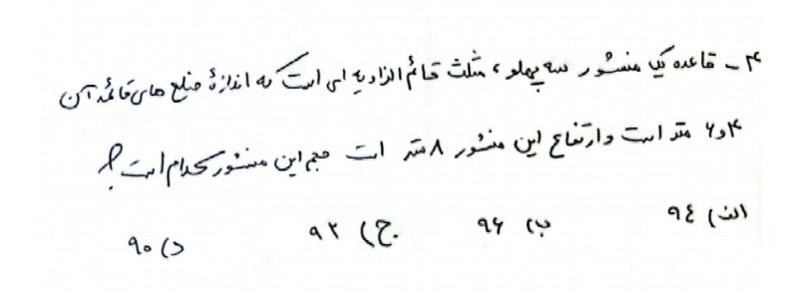 ۴ - قاعده یک منشور سه پهلو، مثلث قائم الزاویه ای است که اندازهٔ ضلع های قائمه آن
۴ و ۶ متر است و ارتفاع این منشور ۸ متر است حجم این منشور کدام است؟
الف) ۹٤ ب) ۹۶ ج) ۹۲ د) ۹۰